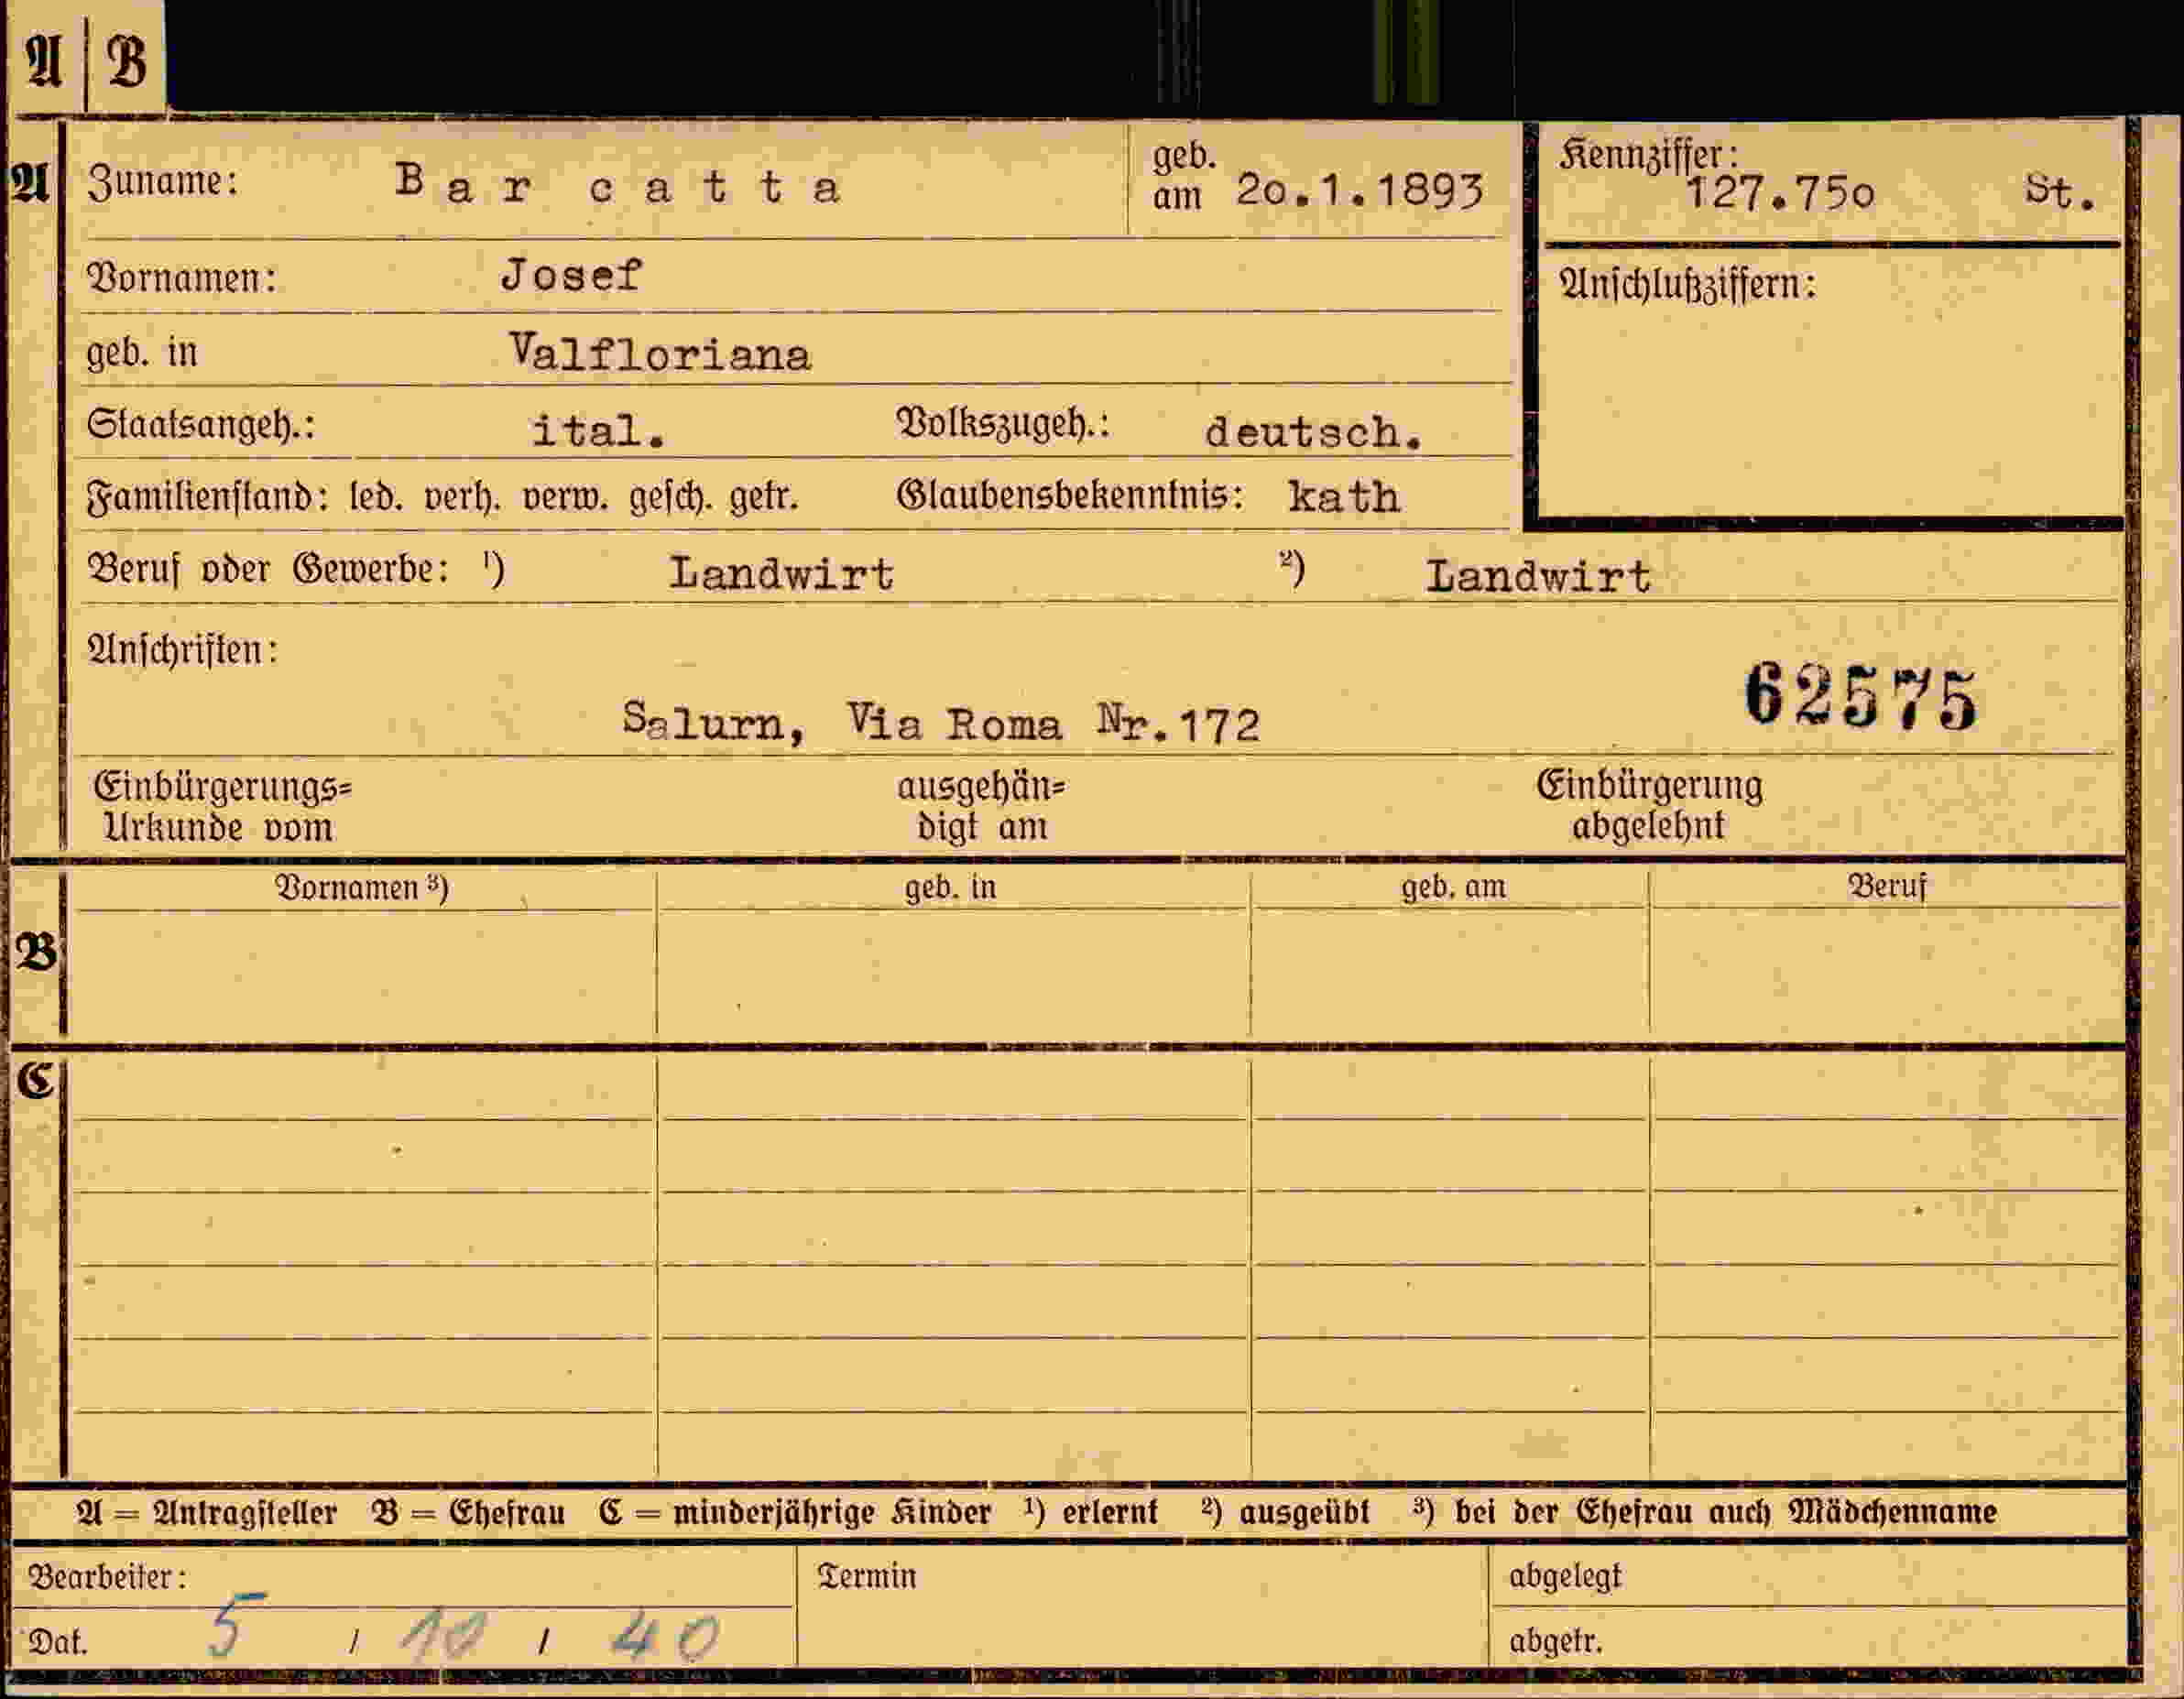 A B
A Zuname: B a r c a t t a geb. am 20.1.1893 Kennziffer: 127.75o St.
Vornamen: Josef Anschlußziffern:
geb. in Valfloriana
Staatsangeh.: ital. Volkszugeh.: deutsch.
Familienstand: led. verh. verw. gesch. getr. Glaubensbekenntnis: kath
Beruf oder Gewerbe: ¹) Landwirt ²) Landwirt
Anschriften:
62575
Salurn, Via Roma Nr.172
Einbürgerungs= ausgehän= Einbürgerung
Urkunde vom digt am abgelehnt
Vornamen ³) geb. in geb. am Beruf
B
C
A = Antragsteller B = Ehefrau C = minderjährige Kinder ¹) erlernt ²) ausgeübt ³) bei der Ehefrau auch Mädchenname
Bearbeiter: Termin abgelegt
Dat. 5 / 10 / 40 abgetr.